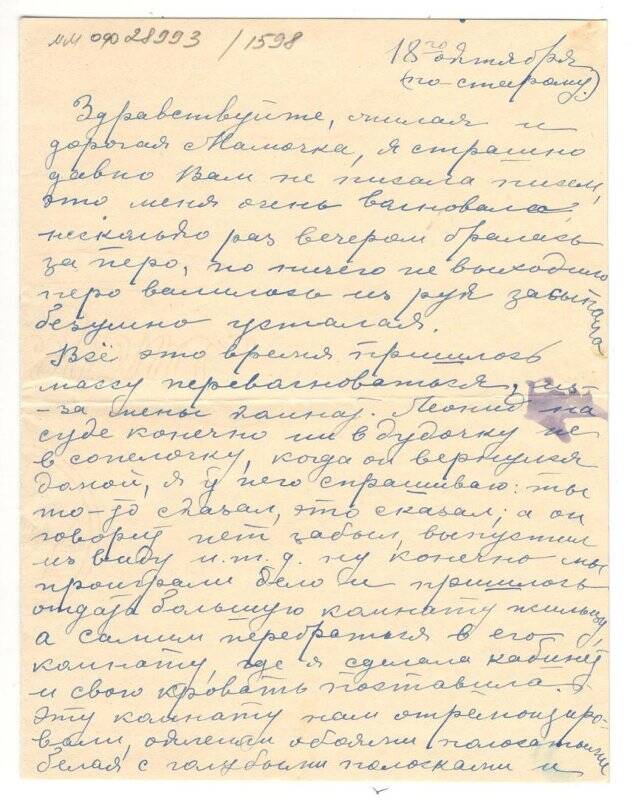 мм офо 28993 / 1598
18го октября
(по-старому)
Здравствуйте, милая и
дорогая Мамочка, я страшно
давно Вам не писала писем,
это меня очень валновало,
несколько раз вечером бралась
за перо, но ничего не выходило
перо валилось из рук засыпала
безумно усталая.
Всё это время пришлось
массу переволноваться, из-
-за мены комнат. Леонид на
суде конечно ни в дудочку не
в сопелочку, когда он вернулся
домой, я у него спрашиваю: ты
то-то сказал, это сказал; а он
говорит нет забыл, выпустил
из виду и.т.д. ну конечно мы
проиграли дело и пришлось
отдать большую комнату жильцу,
а самим перебраться в его
комнату, где я сделала кабинет
и свою кровать поставила.
Эту комнату нам отремонтиро-
вали, оклеили обоями полосатыми
белая с голубыми полосками и